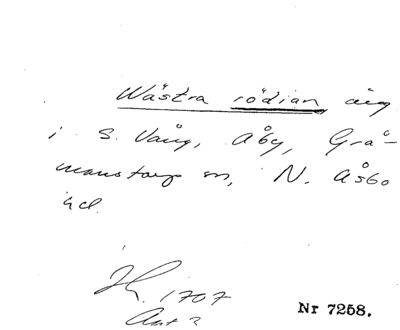 Wästra rödian, äng
i S. Vång, Åby, Grå-
manstorps sn, N. Åsbo
hd.
1707
Nr 7258.